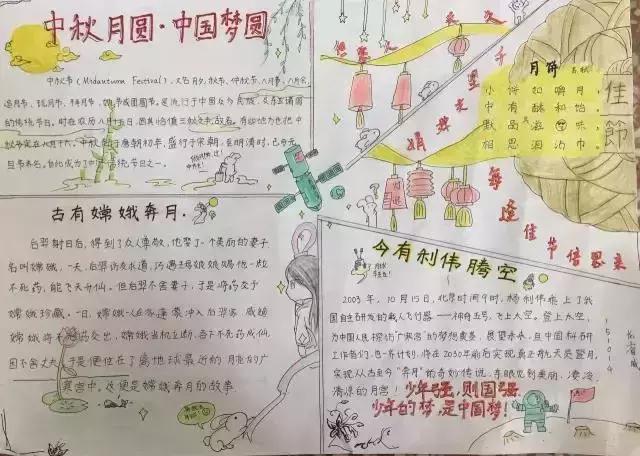 中秋月圆·中国梦圆
中秋节(Midautumn Festival),又名月夕、秋节、仲秋节、八月节、八月会
追月节、玩月节、拜月节、 节或团圆节,是流行于中国众多民族、及东亚诸国
的传统节日。时在农历八月十五日,因其恰值三秋之半,故名。有些地方也把中
秋节定在八月十六。中秋节始于唐朝初年,盛行于宋朝,至明清时,已与元
旦节齐名,也此成为了中国传统节日之一。
但愿人长久
千里共婵娟
每逢佳节倍思亲
月饼
小饼如嚼月,
中有酥和饴
默品其滋味
相思泪沾巾
佳節
古有嫦娥奔月.
后羿射日后,得到了众人尊敬,也娶了一个美丽的妻子
名叫嫦娥,一天,后羿访友求道,巧遇王母娘娘赐他一粒
不死药,能飞天升仙,但后羿不舍妻子,于是将药交于
嫦娥珍藏,一日,
嫦娥将不死药交出,嫦娥当机立断,吞下不死药成仙,
因不舍丈夫,于是便住在了离地球最近的月 的广
寒宫中。这便是嫦娥奔月的故事
今有利伟腾空
2003年,10月15日,北京时间9时,杨利伟乘上了我
国自主研发的载人飞行器——神舟五号,飞上太空。登上太空,
为中国人民探访“广寒宫”的梦想奠基,展望未来,且中国科研
工作者们,已 计划,将在2030年前后实现真正的航天员登月,
实现从古至今“奔月”的奇妙传说,亲眼见到美丽、凄冷、
清凉的月宫!
少年强,则国强
少年的梦,是中国梦!